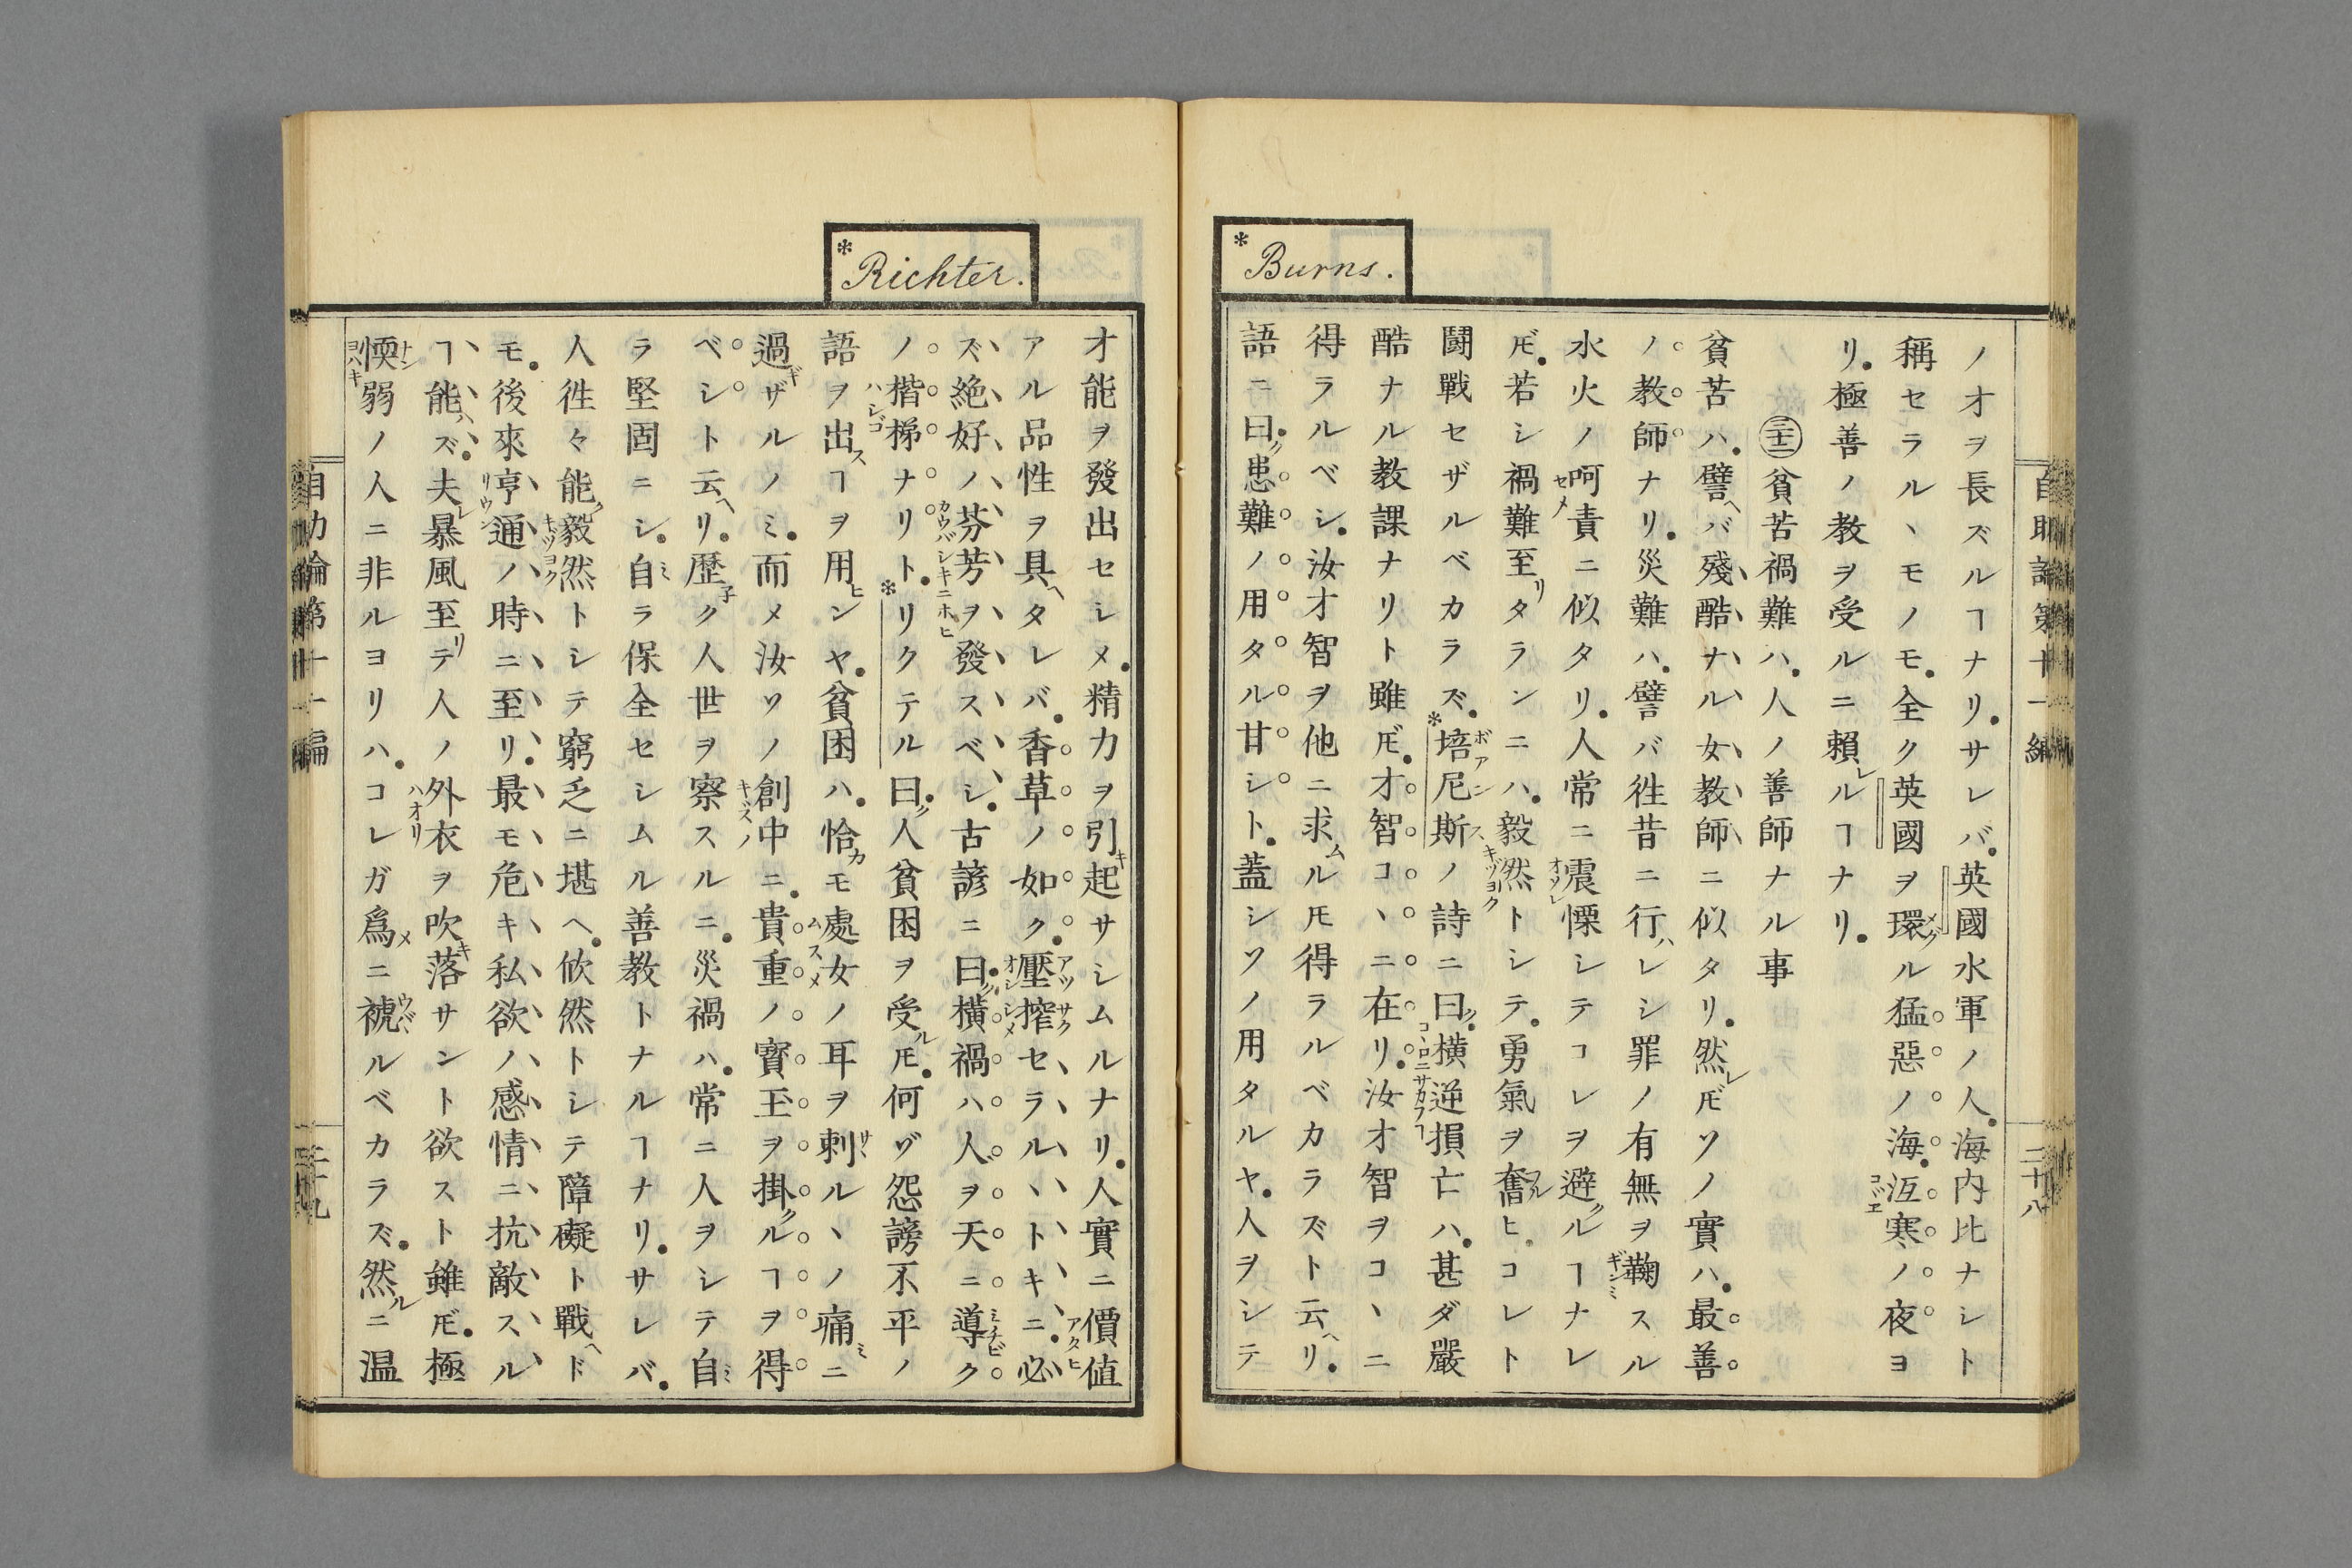 *Burns.
ノオヲ長ズルヿナリ。サレバ。英國水軍ノ人。海内比ナシト
稱セラルヽモノモ。全ク英國ヲ環ル猛惡ノ海。冱寒ノ夜ヨ
リ。極善ノ教ヲ受ルニ賴ルヿナリ。
貧苦禍難ハ。人ノ善師ナル事
貧苦ハ。譬ヘバ殘酷ナル女教師ニ似タリ。然レ𪜈ソノ實ハ。最善
ノ教師ナリ。災難ハ。譬バ徃昔ニ行ハレシ罪ノ有無ヲ鞫スル
水火ノ呵責ニ似タリ。人常ニ震慄シテコレヲ避クルヿナレ
𪜈。若シ禍難至リタランニハ。毅然トシテ。勇氣ヲ奮ヒ。コレト
鬪戰セザルベカラズ。*培尼斯ノ詩ニ曰ク。横逆損亡ハ。甚ダ嚴
酷ナル教課ナリト雖𪜈。才智コヽニ在リ。汝才智ヲコヽニ
得ラルベシ。汝才智ヲ他ニ求ムル𪜈得ラルベカラズト云ヘリ。
語ニ曰ク。患難ノ用タル甘シト。蓋シソノ用タルヤ。人ヲシテ
自助論第十一編
二十八
*Richter.
才能ヲ發出セシメ。精力ヲ引起サシムルナリ。人實ニ價値
アル品性ヲ具ヘタレバ。香草ノ如ク。壓搾セラルヽトキニ。必
ズ絶好ノ芬芳ヲ發スベシ。古諺ニ曰ク。横禍ハ人ヲ天ニ導ク
ノ楷梯ナリト。*リクテル曰ク。人貧困ヲ受ル𪜈。何ヅ怨謗不平ノ
語ヲ出スヿヲ用ヒンヤ。貧困ハ。恰カモ處女ノ耳ヲ刺ルヽノ痛ミニ
過ギザルノミ。而メ汝ソノ創中ニ。貴重ノ寳玉ヲ掛クルヿヲ得
ベシト云ヘリ。歴子ク人世ヲ察スルニ。災禍ハ。常ニ人ヲシテ自ミ
ラ堅固ニシ。自ミラ保全セシムル善教トナルヿナリ。サレバ。
人徃々能ク毅然トシテ窮乏ニ堪ヘ。佽然トシテ障礙ト戰ヘド
モ。後來亨通ノ時ニ至リ。最モ危キ私欲ノ感情ニ抗敵スル
ヿ能ハズ。夫レ暴風至リテ人ノ外衣ヲ吹キ落サント欲スト雖𪜈。極
愞弱ノ人ニ非ルヨリハ。コレガ爲メニ褫ルベカラズ。然ルニ温
自助論第十一編
二十九